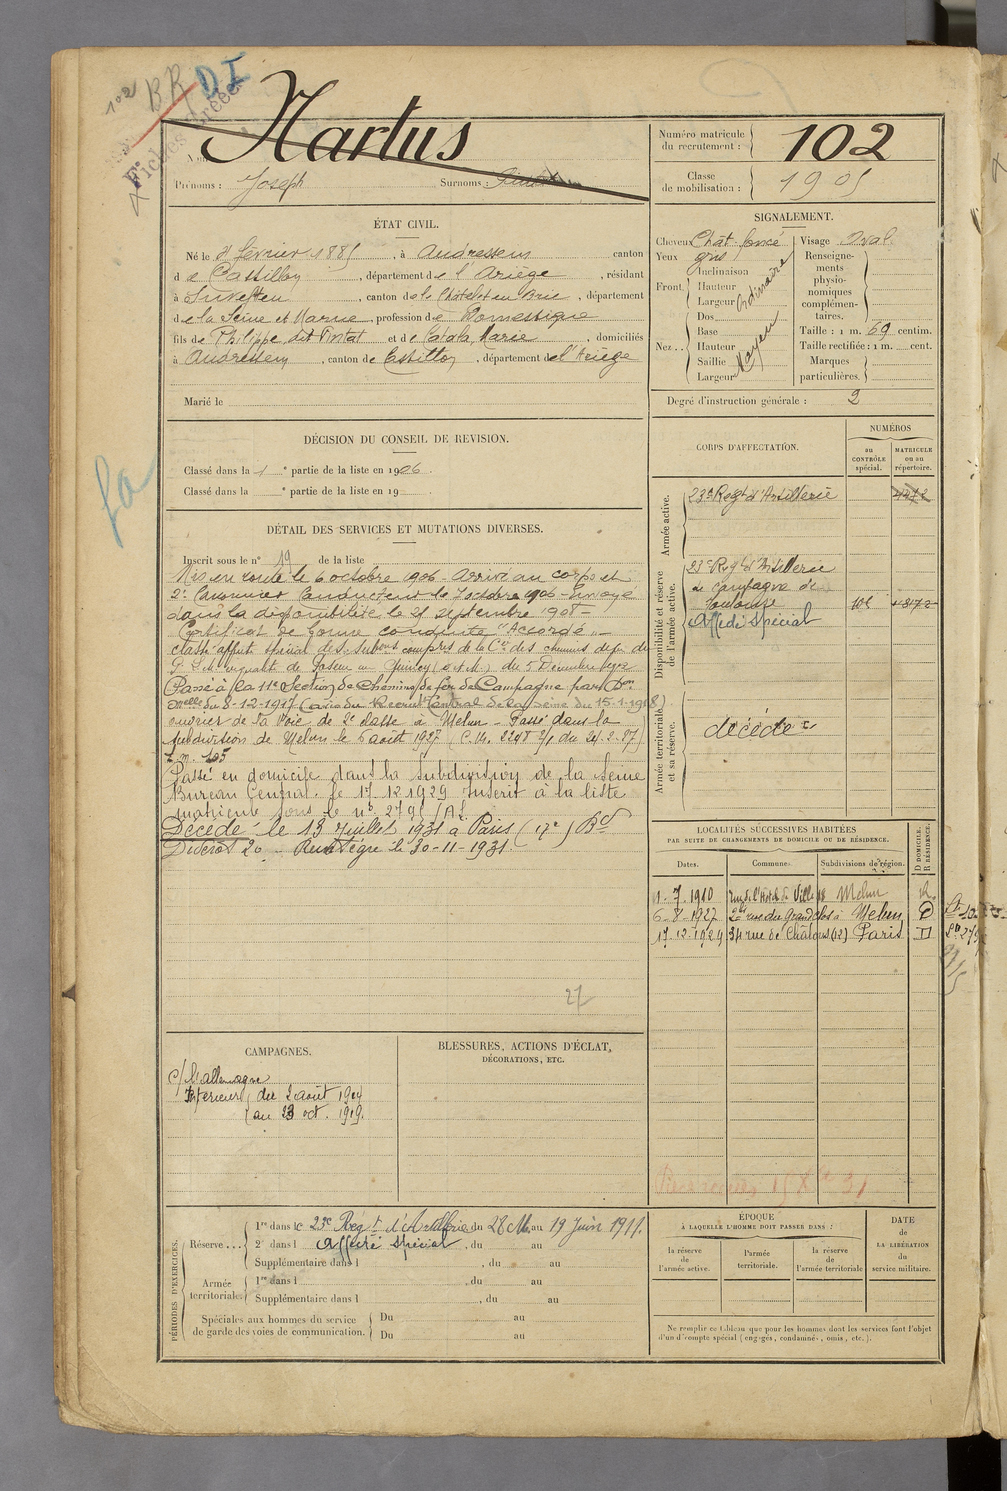 102 BR DI
Fiches
Nom Martus
Prénoms : Joseph Surnoms :
Numéro matricule du recrutement : 102
Classe de mobilisation : 1905
ÉTAT CIVIL.
Né le 4 février 1885, à Audressein canton
de Castillon, département de l'Ariège, résidant
à, canton de le Châtelet en Brie, département
de la Seine et Marne, profession de Domestique
fils de Philippe, dit Pintat et de Catala Marie, domiciliés
à Audressein, canton de Castillon, département de l'Ariège
Marié le
SIGNALEMENT.
Cheveux Chât. foncé
Yeux gris
Front. Inclinaison Hauteur Largeur Ordinaire
Nez.. Dos Base Hauteur Saillie Largeur Moyen
Visage Oval
Renseignements physionomiques complémentaires.
Taille : 1 m. 69 centim.
Taille rectifiée : 1 m. cent.
Marques particulières.
Degré d'instruction générale : 2
DÉCISION DU CONSEIL DE REVISION.
Classé dans la 1e partie de la liste en 1906.
Classé dans la e partie de la liste en 19
DÉTAIL DES SERVICES ET MUTATIONS DIVERSES.
Inscrit sous le n° 19 de la liste
Mis en route le 6 octobre 1906 - Arrivé au corps et
2e Canonnier Conducteur le 7 octobre 1906 - Envoyé
dans la disponibilité le 21 septembre 1908 =
Certificat de bonne conduite "Accordé" -
Classé affecté spécial des subons compris de la Cie des chemins de fer de
du 5 Décembre 1912
Passé à la 11e Section de Chemins de fer de Campagne par Don
melle du 8-12-1917 (avis du Recrut Central de la Seine du 15-1-1918).
ouvrier de la Voie de 2e classe à Melun - Passé dans la
subdivision de Melun le 6 août 1927
Passé en domicile dans la subdivision de la Seine
Bureau Central le 17.12.1929 inscrit à la liste
matricule sous le no
Décédé le 13 Juillet 1931 à Paris (17e) Bd
30-11-1931.
27
CORPS D'AFFECTATION.
NUMÉROS
au CONTRÔLE spécial.
MATRICULE ou au répertoire.
Armée active.
23e Regt d'Artillerie
Disponibilité et réserve de l'armée active.
23e Regt d'Artillerie
de campagne de
Toulouse
Affecté spécial
Armée territoriale et sa réserve.
décédé
LOCALITÉS SUCCESSIVES HABITÉES
PAR SUITE DE CHANGEMENTS DE DOMICILE OU DE RÉSIDENCE.
Dates. Communes. Subdivisions de région. D DOMICILE. R RÉSIDENCE.
1.7.1910 rue de l'Hotel de Ville Melun R.
6-8-1927 rue du Grand clos à Melun D
17.12.1929 34 rue de Châlons (12) Paris D
CAMPAGNES.
c/ l'allemagne
Intérieur du 2 août 1914
au 23 oct. 1919.
BLESSURES, ACTIONS D'ÉCLAT,
DÉCORATIONS, ETC.
PÉRIODES D'EXERCICES.
Réserve ... 1re dans le 23e Regt d'Artillerie du 28 Mai au 19 Juin 1911.
2e dans l Affecté spécial, du au
Supplémentaire dans l, du au
Armée territoriale. 1re dans l, du au
Supplémentaire dans l, du au
Spéciales aux hommes du service de garde des voies de communication. Du au
Du au
ÉPOQUE
À LAQUELLE L'HOMME DOIT PASSER DANS :
la réserve de l'armée active.
l'armée territoriale.
la réserve de l'armée territoriale
DATE de LA LIBÉRATION du service militaire.
Ne remplir ce tableau que pour les hommes dont les services font l'objet
d'un décompte spécial (engagés, condamnés, omis, etc.).